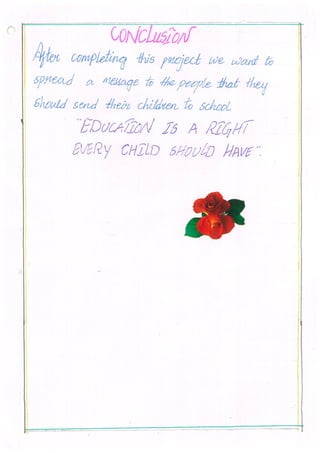 CONCLUSION
After completing this project we want to
spread a message to the people that they
should send their children to school.
"EDUCATION IS A RIGHT
EVERY CHILD SHOULD HAVE".